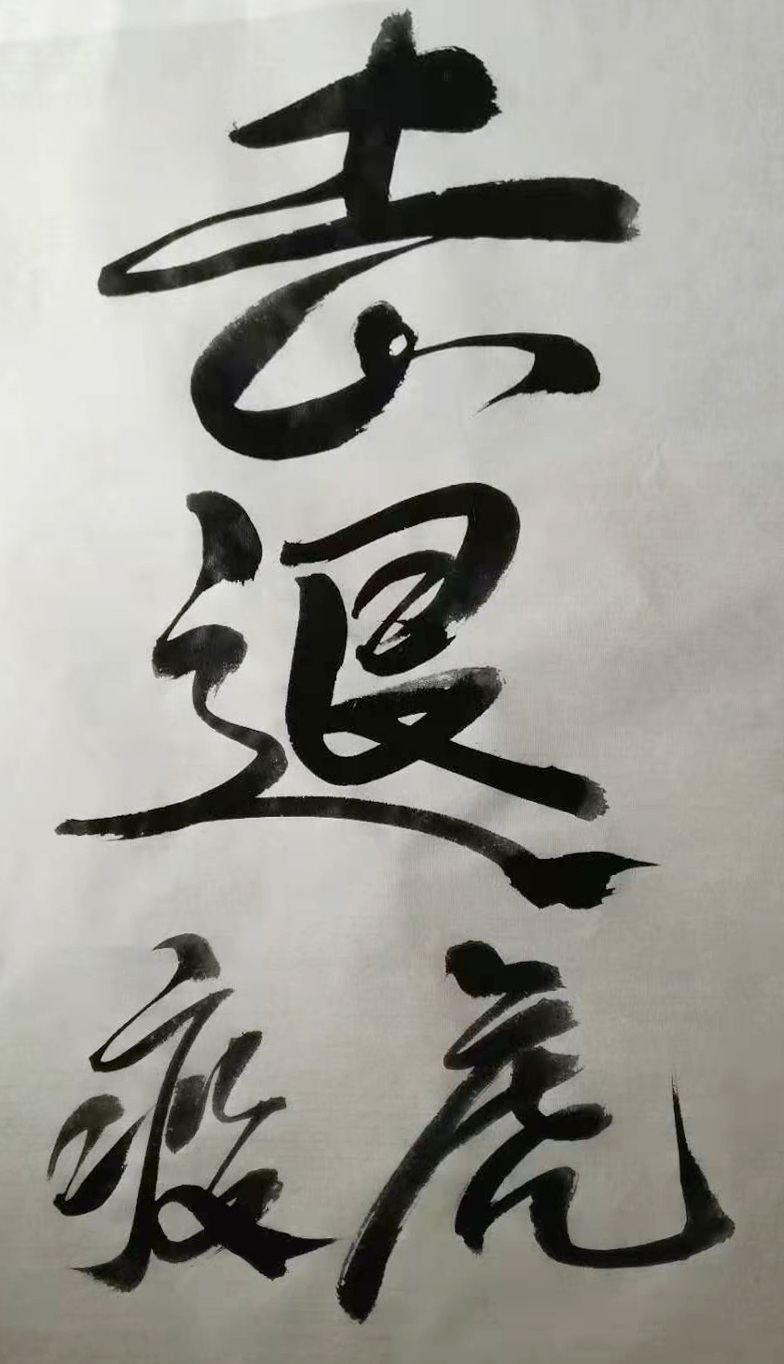 去
退
疫虎